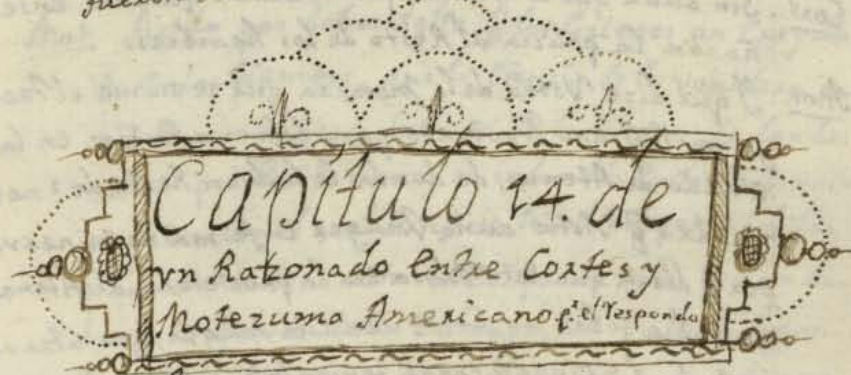 Capítulo 14. de
vn Razonado Entre Cortes y
Motezuma Americano pr. el Respondo